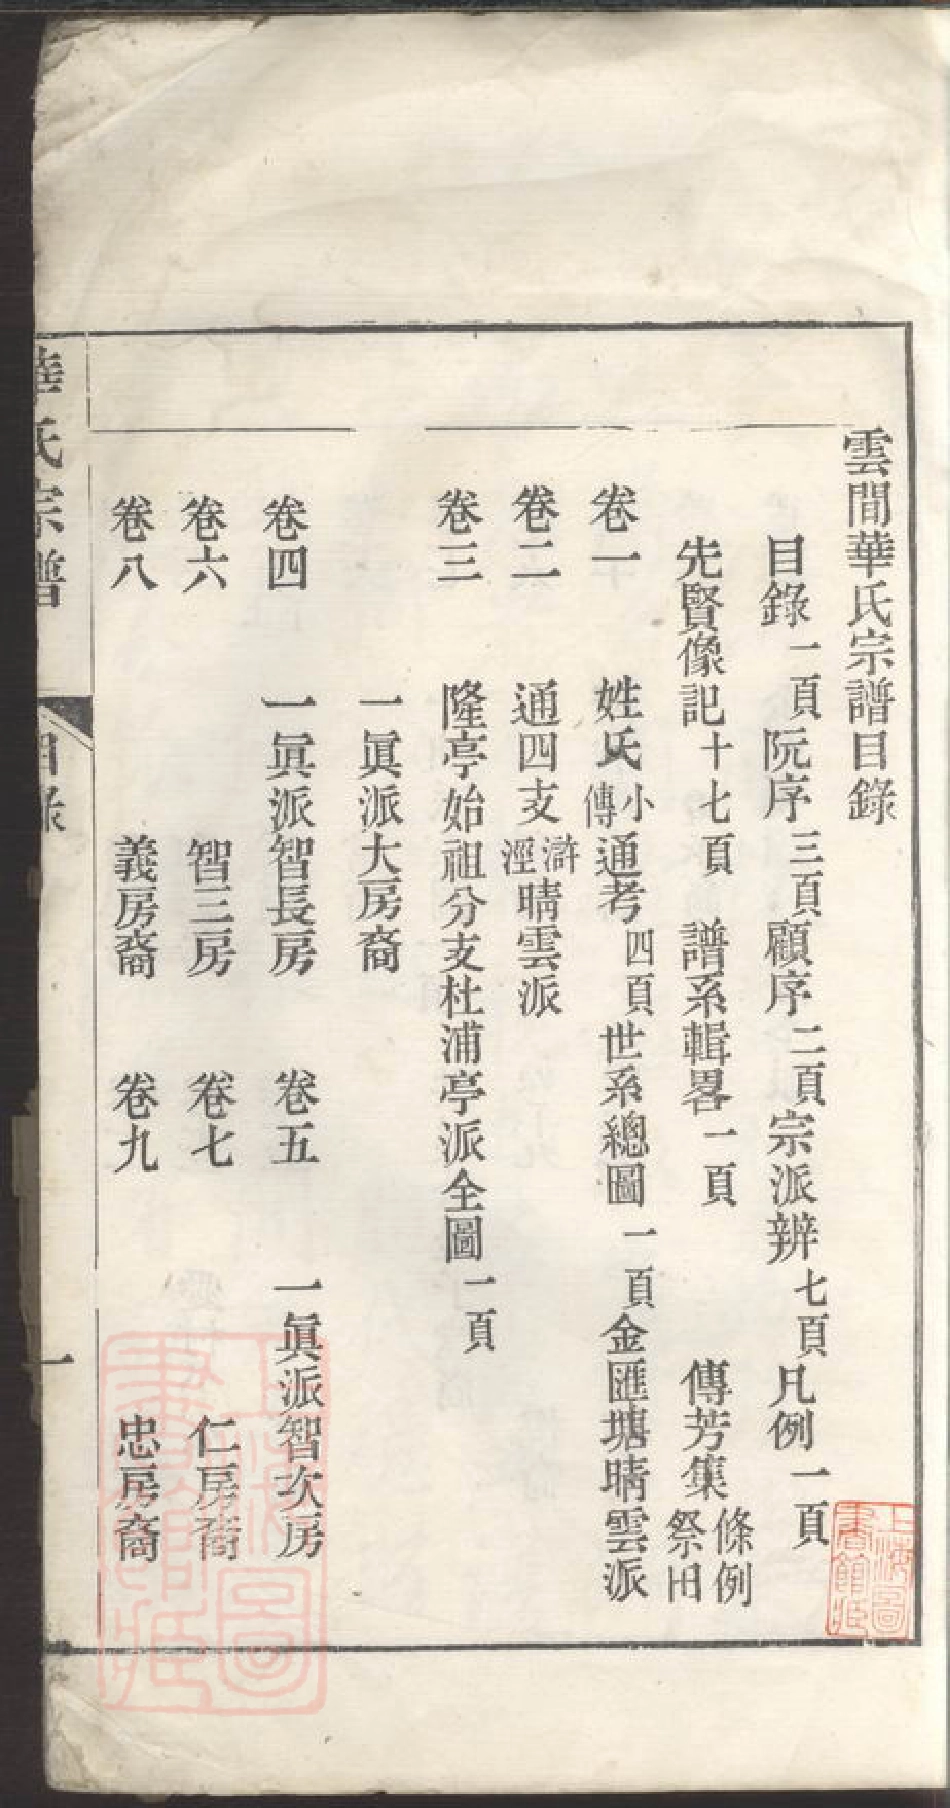 雲間華氏宗譜目錄
目錄一頁阮序三頁顧序二頁宗派辨七頁凡例一頁
先賢像記十七頁 譜系輯畧一頁 傳芳集條例祭田
卷一 姓氏小傳通考四頁世系總圖一頁金匯塘晴雲派
卷二 通四支滸涇晴雲派
卷三 隆亭始祖分支杜浦亭派全圖一頁
一眞派大房裔
卷四 一眞派智長房 卷五 一眞派智次房
卷六 智三房 卷七 仁房裔
卷八 義房裔 卷九 忠房裔
華氏宗譜 目錄 一
上海圖書館藏
上海圖書館藏